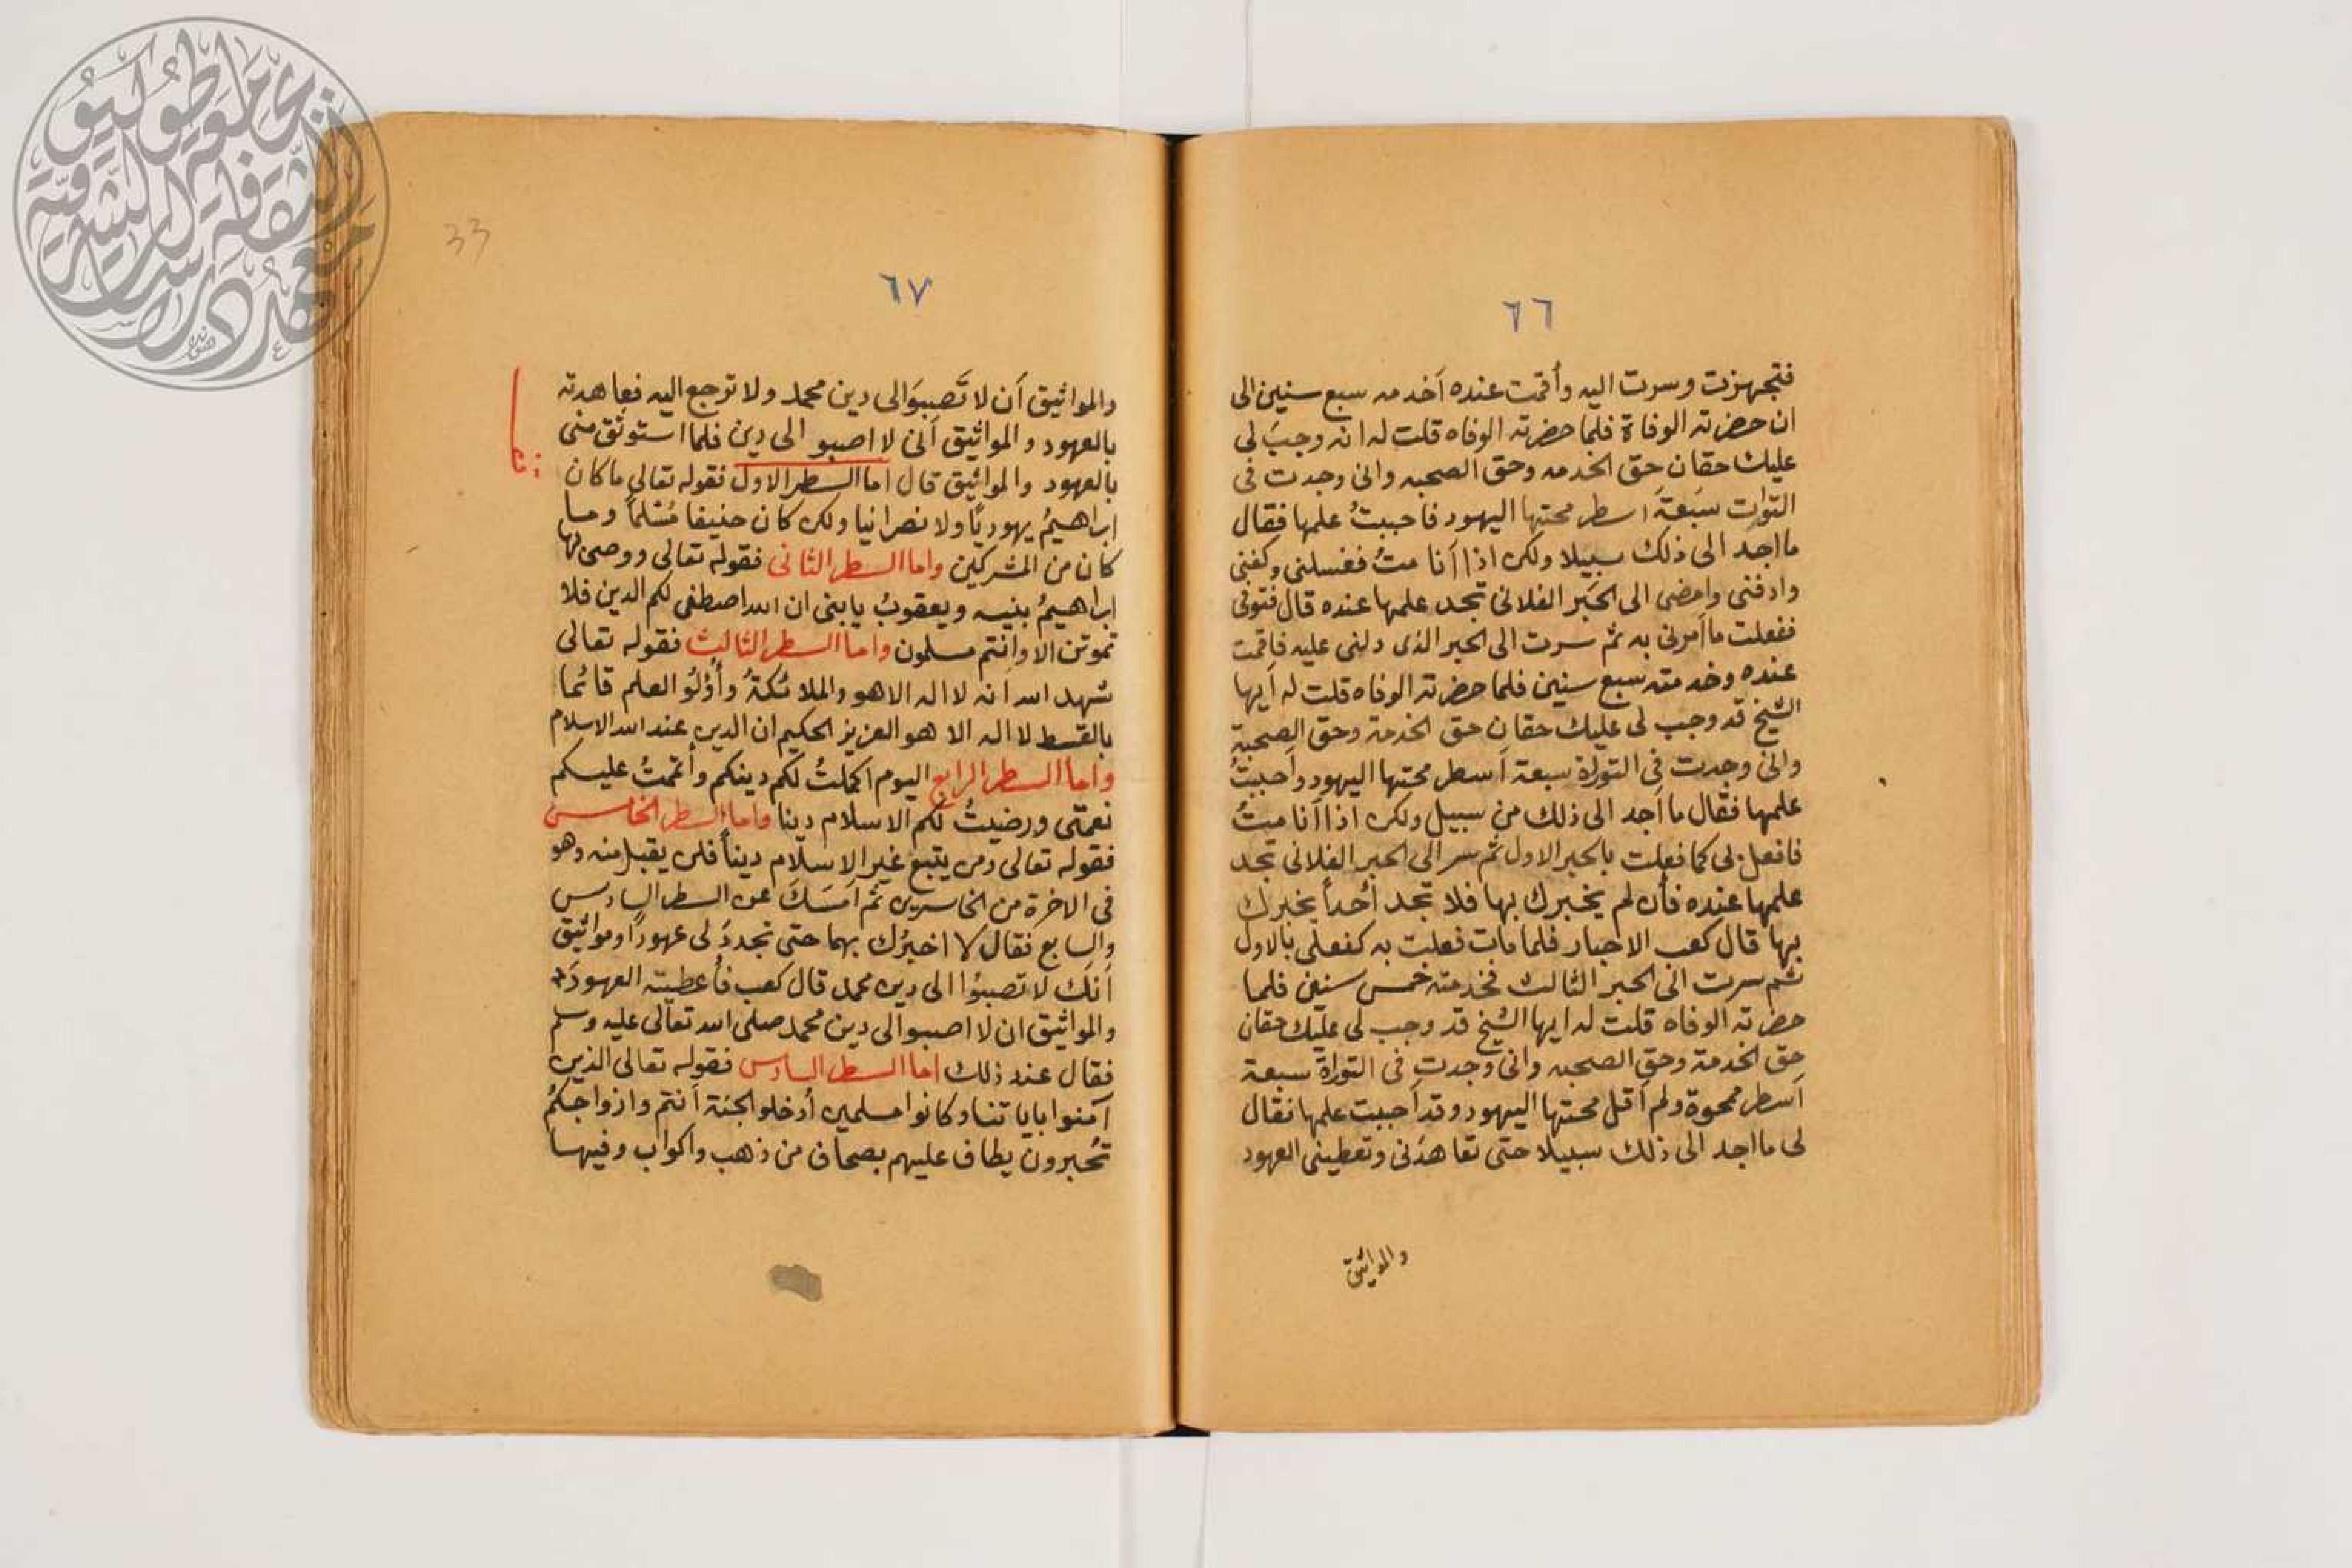 ٦٦
فتجهزت وسرت اليه وأقمت عنده آخدمه سبع سنين الى
ان حضرته الوفاة فلما حضرته الوفاه قلت له انه وجبَ لى
عليك حقان حق الخدمه وحق الصحبه وانى وجدت فى
التوات سَبعةَ اسطر محتها اليهود فاحببتُ علمها فقال
ما اجد الى ذلك سبيلا ولكن اذا أنا متُ فغسلنى وكفنى
وادفنى وامضى الى الحَبر الفلانى تجد علمها عنده قال فتوفى
ففعلت ما أمرنى به ثم سرت الى الحبر الذى دلنى عليه فاقمت
عنده وخدمته سبع سنين فلما حضرته الوفاه قلت له أيها
الشيخ قد وجب لى عليك حقان حق الخدمة وحق الصحبة
وانى وجدت فى التوراة سبعة أسطر محتها اليهود وأحببتُ
علمها فقال ما أجد الى ذلك من سبيل ولكن اذا أنا متُ
فافعل بى كما فعلت بالحبر الاول ثم سر الى الحبر الفلانى تجد
علمها عنده فأن لم يخبرك بها فلا تجد أحداً يخبرك
بها قال كعب الاحبار فلما مات فعلت به كفعلى بالاول
ثم سرت الى الحبر الثالث فخدمته خمس سنين فلما
حضرته الوفاه قلت له ايها الشيخ قد وجب لى عليك حقان
حق الخدمة وحق الصحبه وانى وجدت فى التوراة سبعة
أسطر ممحوة ولم أقل محتها اليهود وقد أحببت علمها فقال
لى ما اجد الى ذلك سبيلا حتى تعاهدنى وتعطينى العهود
والمواثيق
33
٦٧
والمواثيق أن لا تَصببوَ الى دين محمد ولا ترجع اليه فعاهدته
بالعهود والمواثيق أنى لا اصبو الى دين فلما استوثق منى
بالعهود والمواثيق قال اما السطر الاول فقوله تعالى ما كان
ابراهيمُ يهوديًا ولا نصرانيا ولكن كان حنيفا مُسْلماً وما
كان من المشركين واما السطر الثانى فقوله تعالى ووصى بها
ابراهيمُ بنيه ويعقوبُ يابنى ان الله اصطفى لكم الدين فلا
تموتن الا وانتم مسلمون واما السطر الثالث فقوله تعالى
شهد الله أنه لا اله الا هو والملائكةُ وأولوُ العلم قائما
بالقسط لا اله الا هو العزيز الحكيم ان الدين عند الله الاسلام
واما السطر الرابع اليوم اكملتُ لكم دينكم وأتممتُ عليكم
نعمتى ورضيتُ لكم الاسلام دينا واما السطر الخامس
فقوله تعالى ومن يتبع غير الاسلام ديناً فلن يقبل منه وهو
فى الاخرة من الخاسرين ثم أمسَكَ عن السطر السادس
والسابع فقال لا اخبرُك بهما حتى تجددَ لى عهودًا ومواثيق
أنَك لا تصبوُا الى دين محمد قال كعب فأعطيته العهودَ
والمواثيق ان لا اصبوَ الى دين محمد صلى الله تعالى عليه وسلم
فقال عند ذلك اما السطر السادس فقوله تعالى الذين
آمنوا باياتنا وكانوا مسلمين أدخلو الجنة أنتم وازواجكمُ
تُحبرون يطاف عليهم بصحاف من ذهب واكواب وفيها